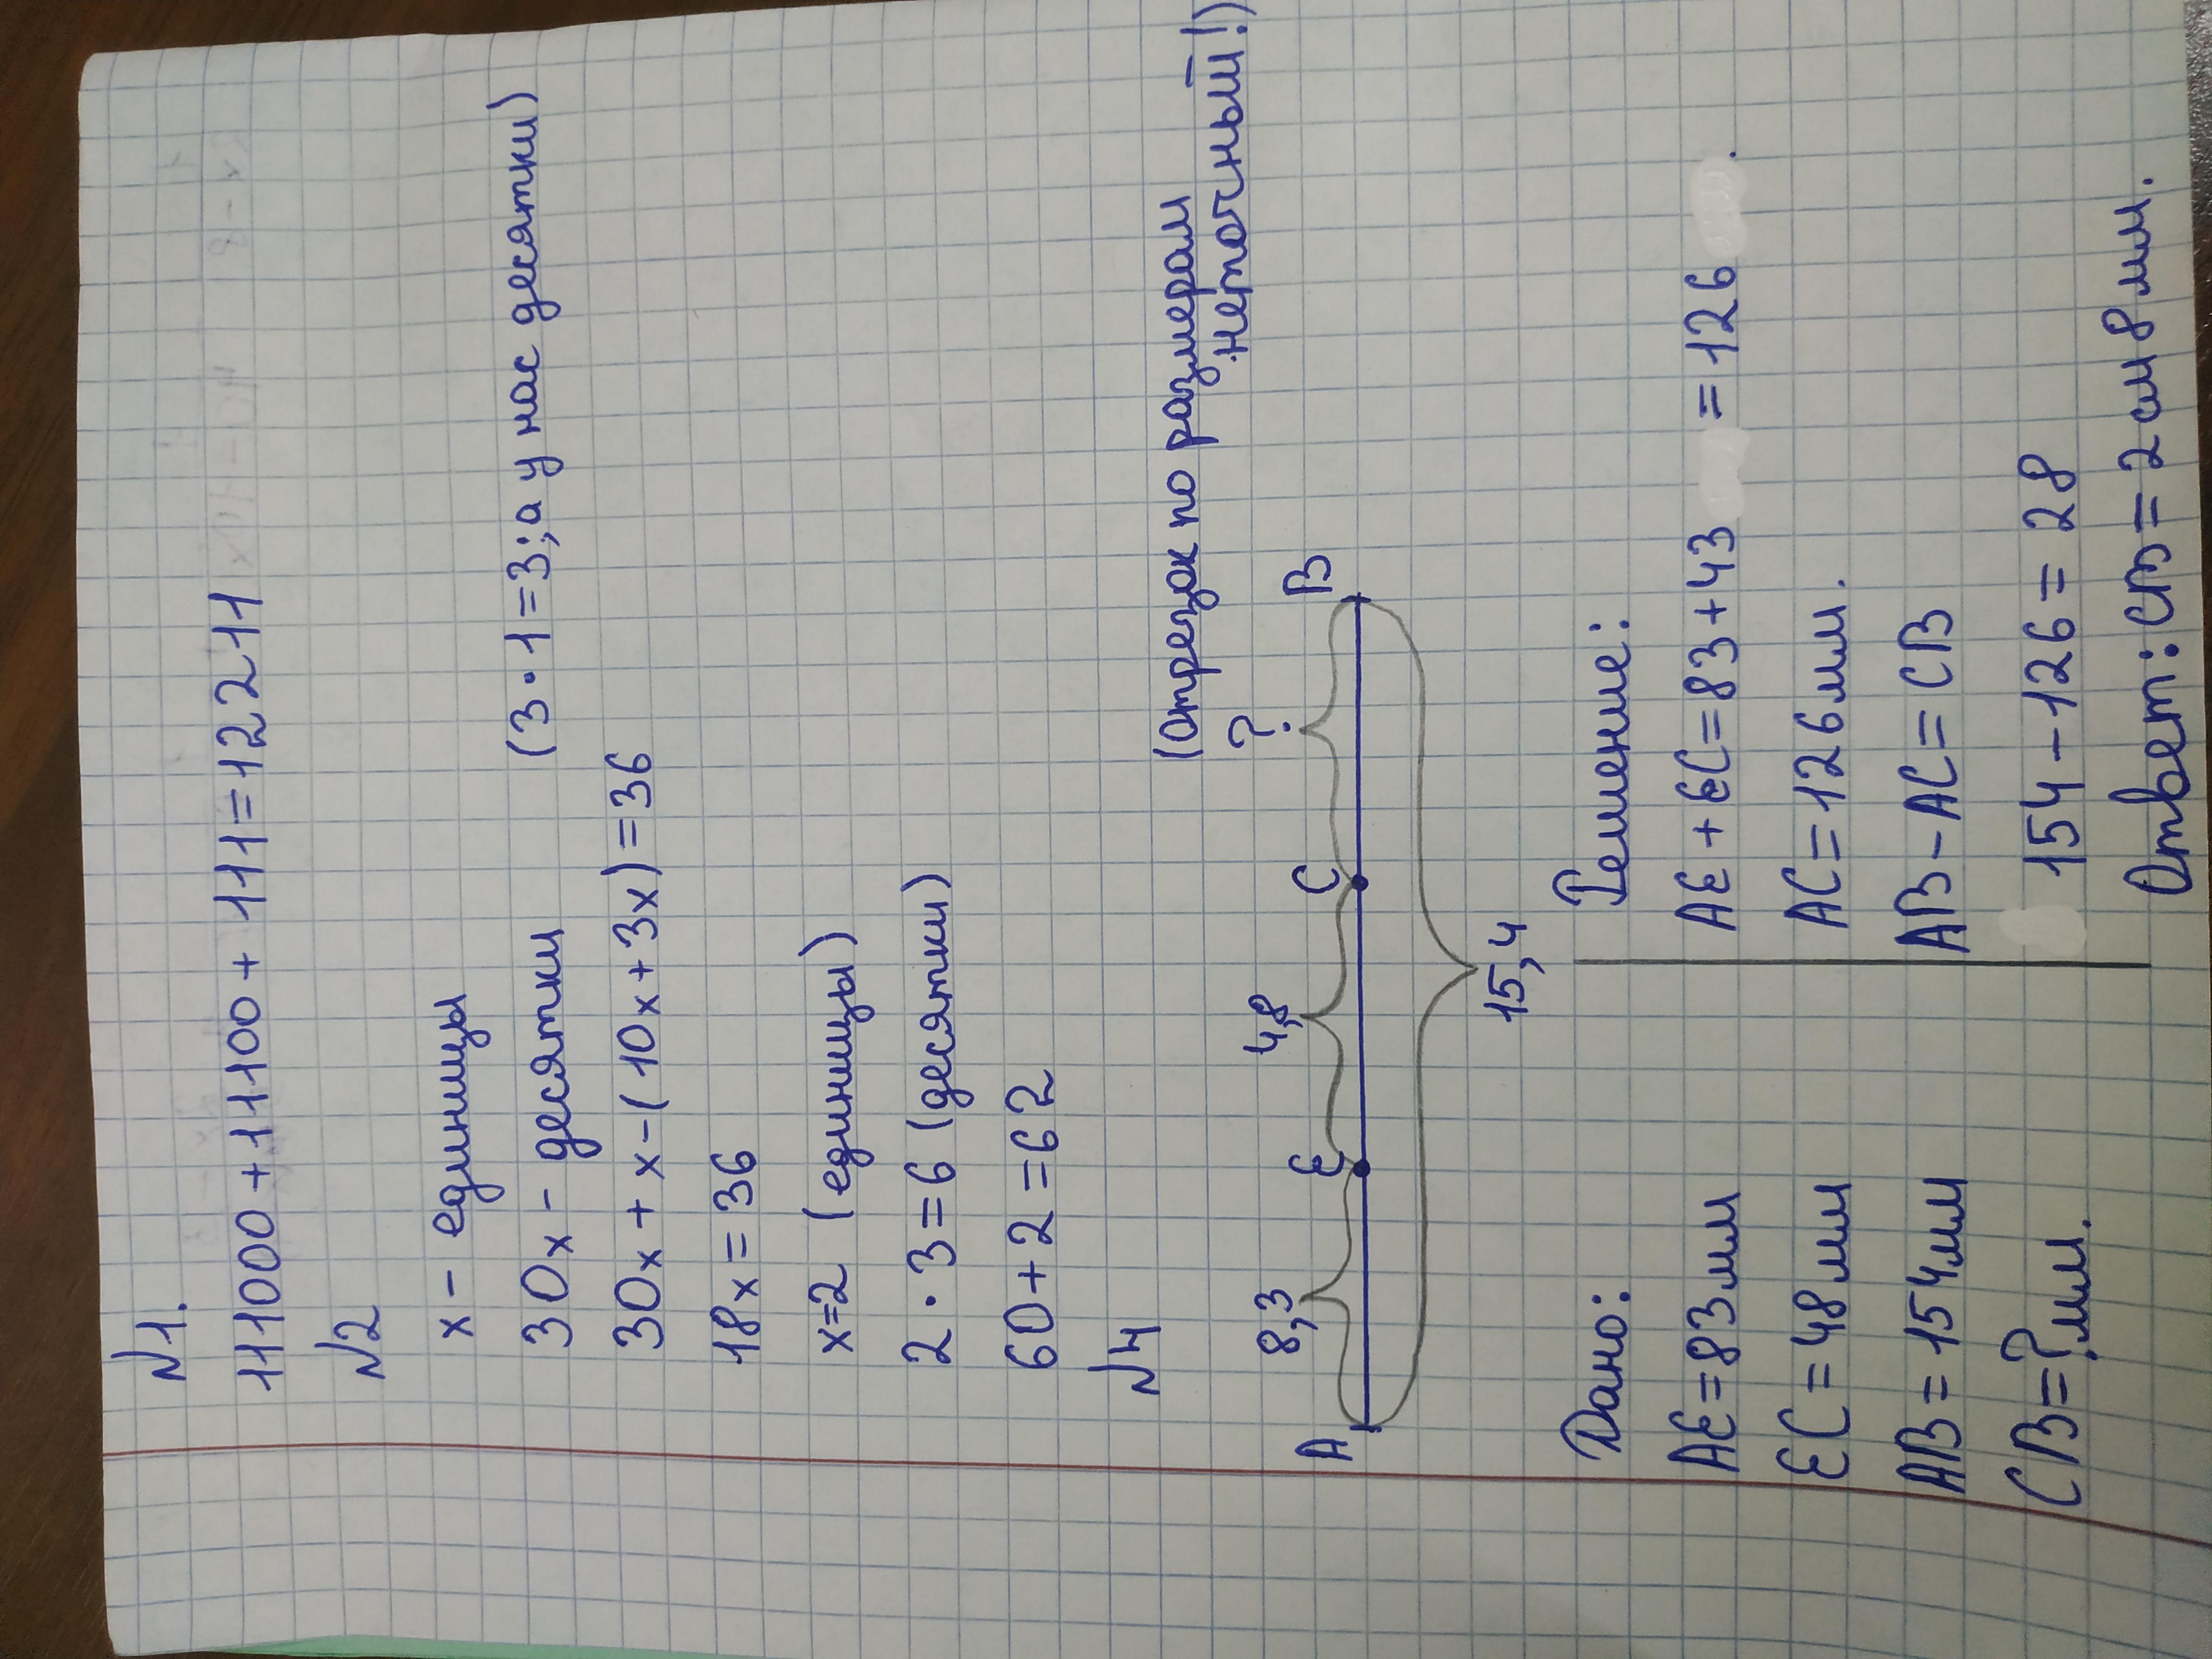 №1.
111000+11100+111=122211
№2
x - единицы
30x - десятки (3·1=3; а у нас десятки)
30x+x-(10x+3x)=36
18x=36
x=2 (единицы)
2·3=6 (десятки)
60+2=62
№4
(Отрезок по размерам
неточный!)
8,3 4,8 ?
A E C B
15,4
Дано:
AE=83мм
EC=48мм
AB=154мм
CB=?мм.
Решение:
AE+EC=83+43 =126 .
AC=126мм.
AB-AC=CB
154-126=28
Ответ: CB=2см 8мм.